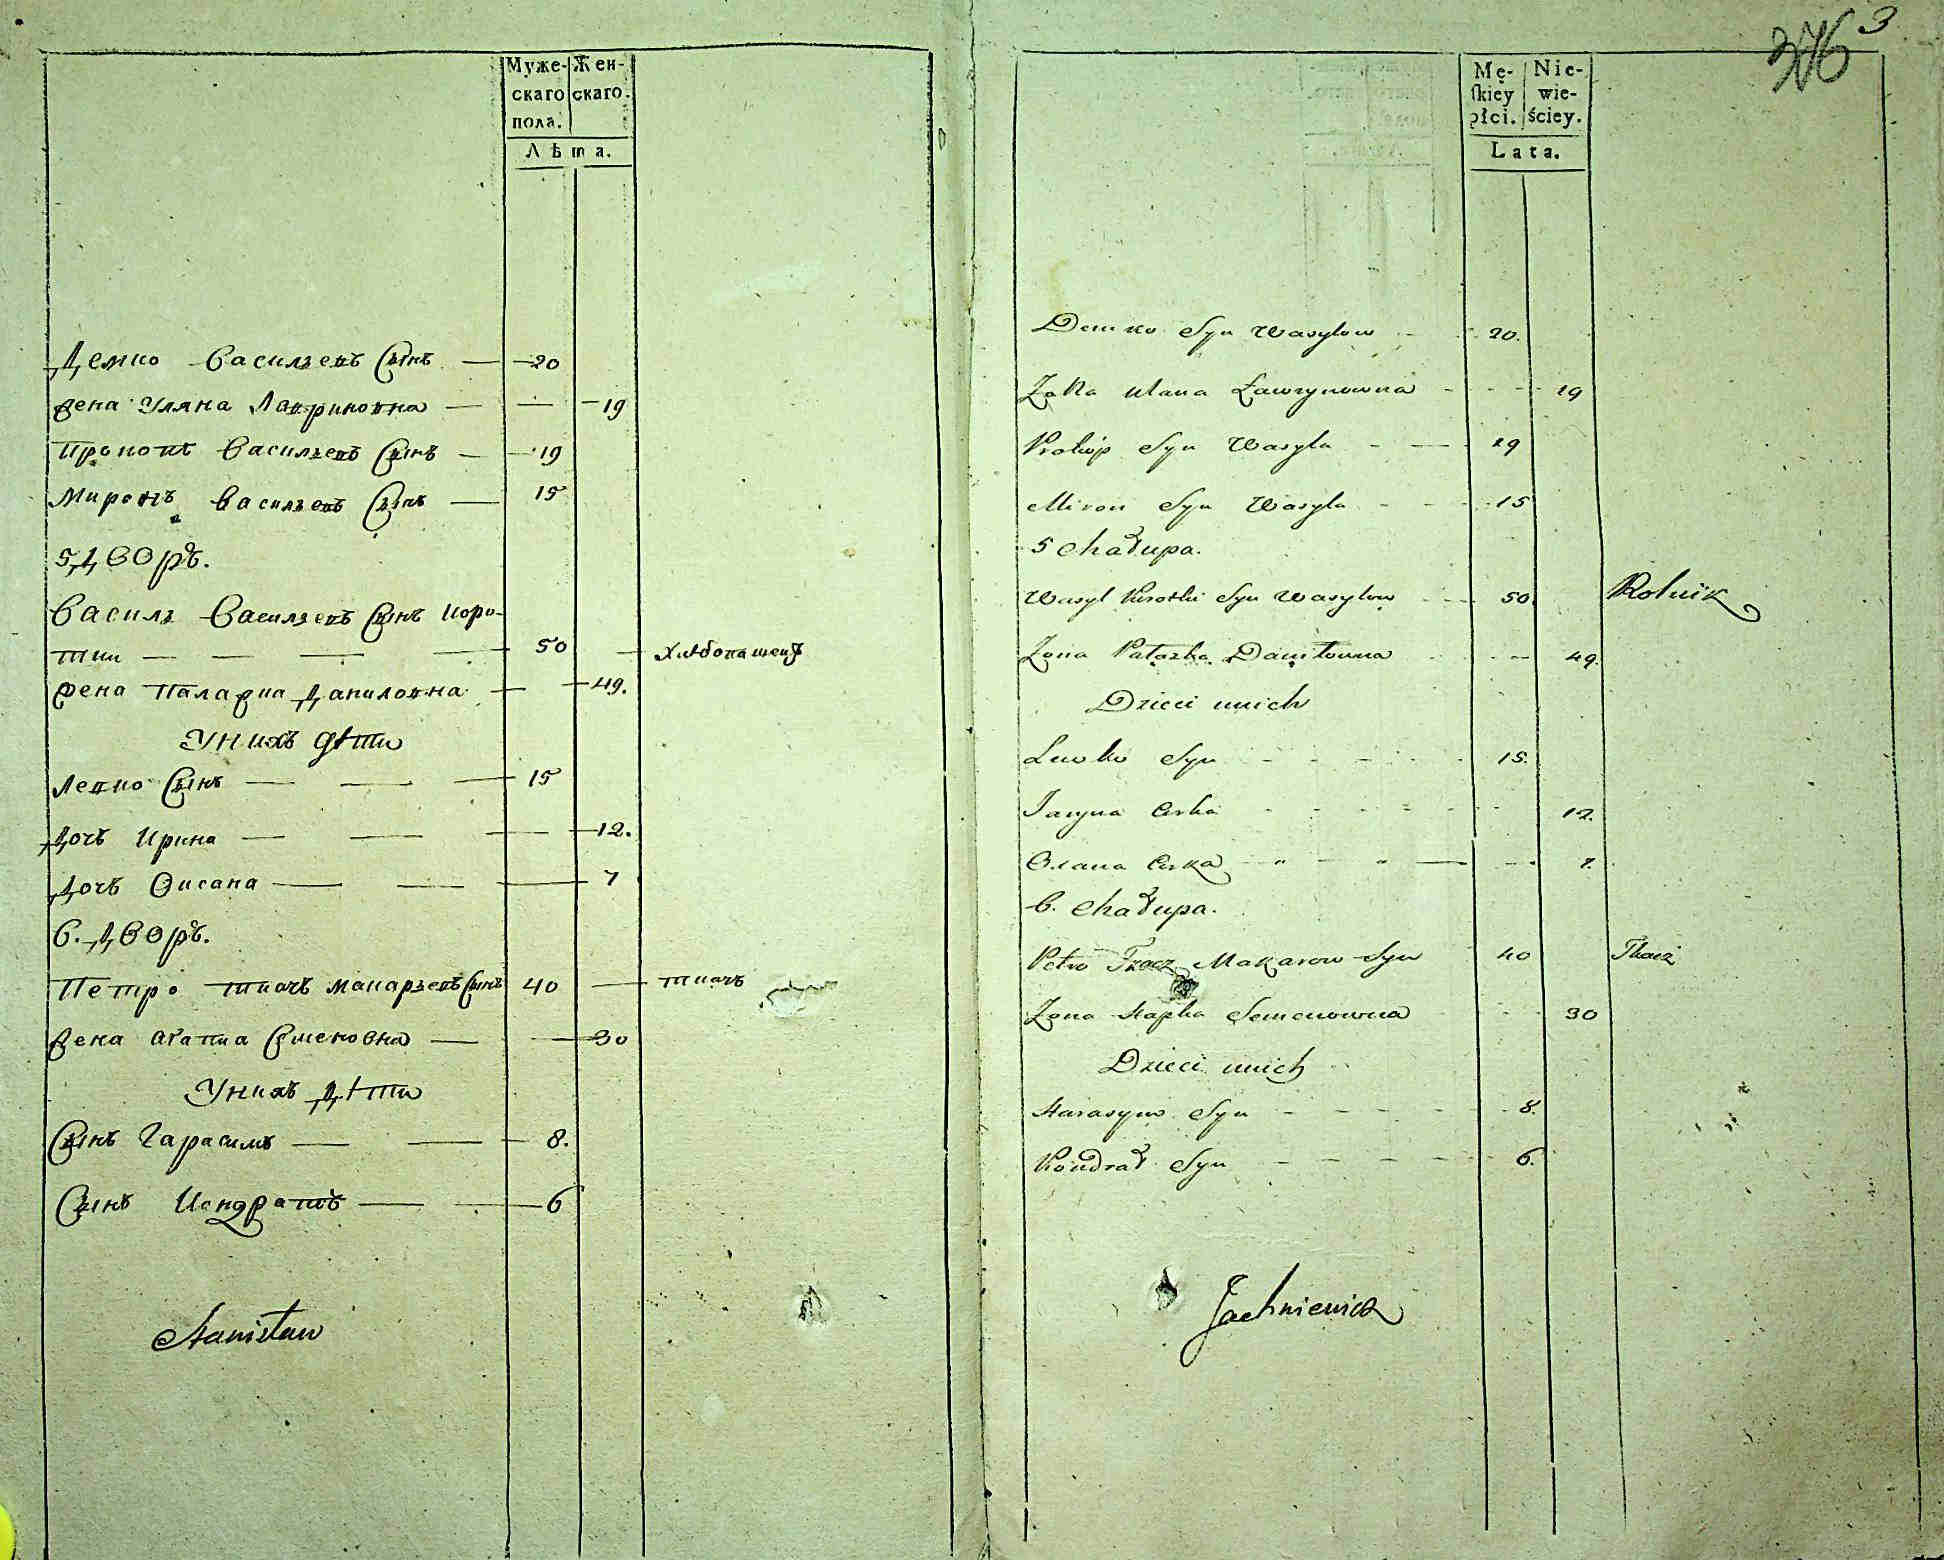 Муже-
скаго
пола.
Жен-
скаго.
Лѣта.
Демко Васильевъ Сынъ — 20
Жена Уляна Лавриновна — — 19
Прокопъ Васильевъ Сынъ — 19
Миронъ Васильевъ Сынъ — 15
5 Дворъ.
Василь Васильевъ Сынъ Коро-
ткии — — — — 50 — хлѣбопашецъ
Жена Палажка Даниловна — 49.
У нихъ дѣти
Левко Сынъ — — — 15
Дочь Ирина — — — 12.
Дочь Оксана — — — 7
6. Дворъ.
Петро ткачъ Макарьевъ Сынъ 40 — ткачъ
Жена Агапка Семеновна — — 30
У нихъ Дѣти
Сынъ Гарасимъ — — 8.
Сынъ Кондратъ — — 6
Stanisław
376 3
Mę-
skiey
płci.
Nie-
wie-
ściey.
Lata.
Demko Syn Wasylow - - 20.
Zona Ulana Ławrynowna - - - - 19
Prokop Syn Wasyla - — - 19
Miron Syn Wasyla - - - 15
5 Chałupa.
Wasyl Korotki Syn Wasylow - - 50. Rolnik
Zona Palazka Daniłowna - - - 49.
Dzieci unich
Lewko Syn - - - - - 15.
Jaryna Corka - - - - - - 12.
Oxana Corka - - - — - - 7.
6. Chałupa.
Petro Tkacz Makarow Syn 40 Tkacz
Zona Hapka Semenowna - - 30
Dzieci unich
Harasym Syn - - - - - 8.
Kondrat Syn - - - - - 6.
Jachniewicz